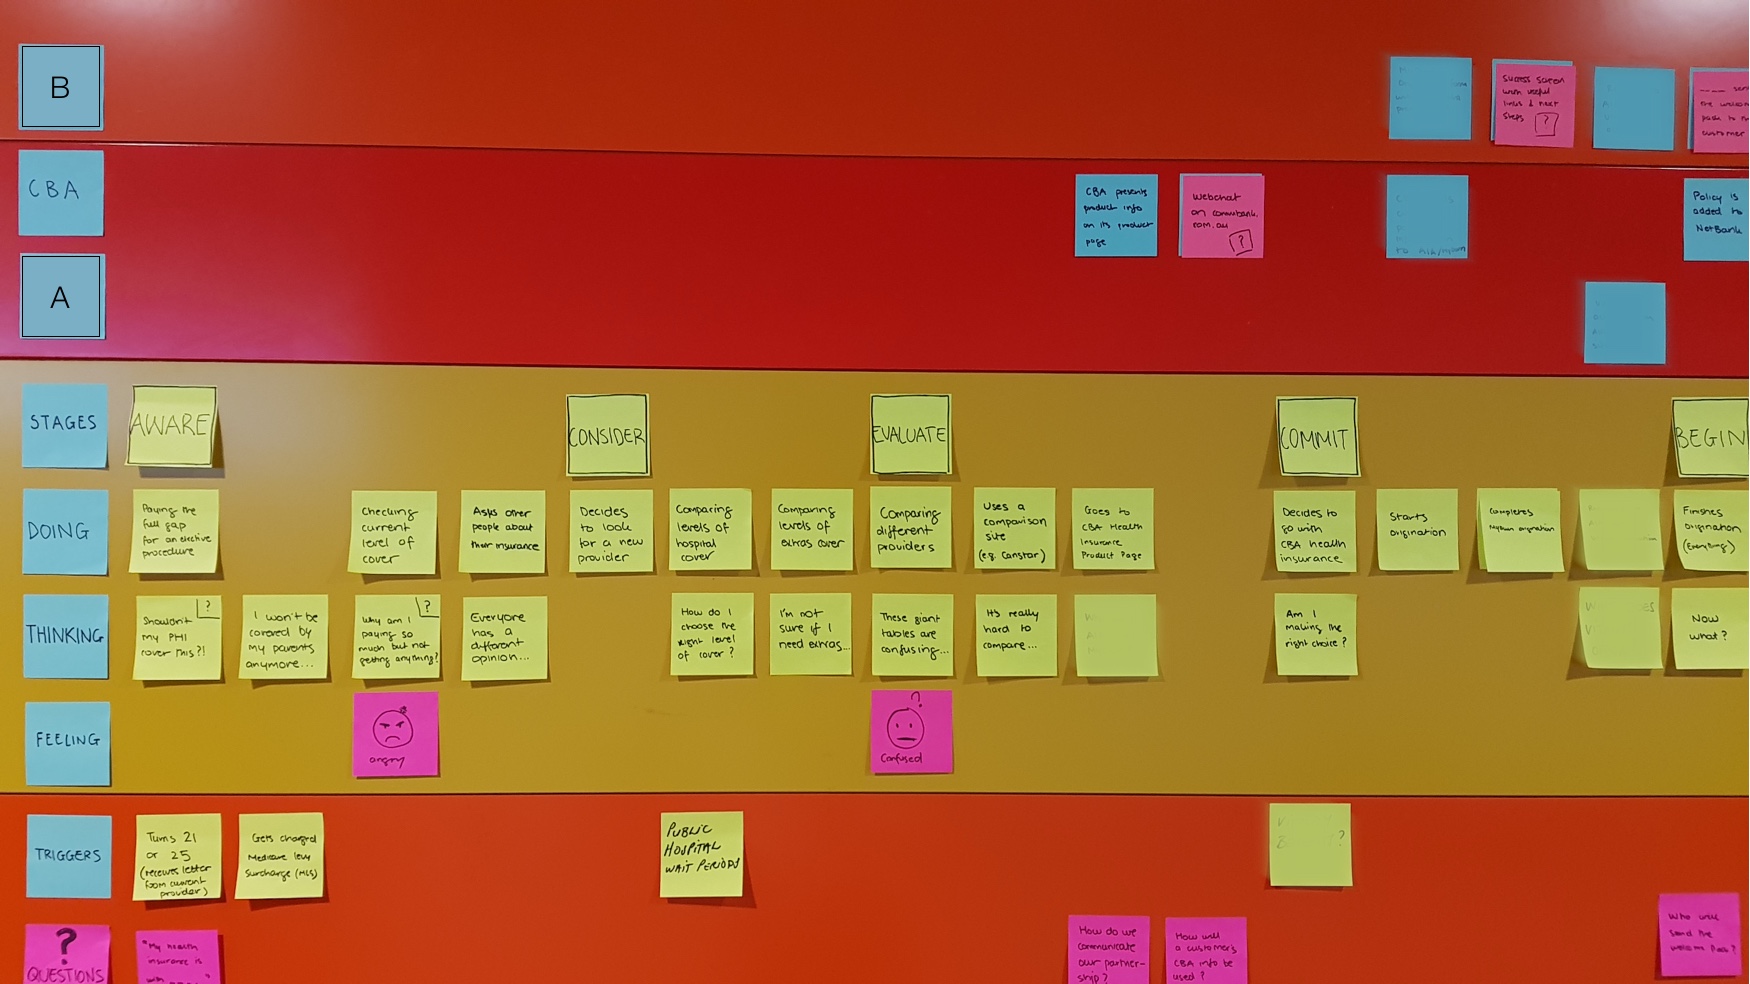 B
success screen
with useful
links & next
steps
?
the welcome
pack to
customer
CBA
CBA presents
product info
on its product
page
Webchat
on commbank.
com.au
?
Policy is
added to
NetBank
A
STAGES
AWARE
CONSIDER
EVALUATE
COMMIT
BEGIN
DOING
Paying the
full gap
for an elective
procedure
Checking
current
level of
cover
Asks other
people about
their insurance
Decides
to look
for a new
provider
Comparing
levels of
hospital
cover
Comparing
levels of
extras cover
Comparing
different
providers
Uses a
comparison
site
(e.g. Canstar)
Goes to
CBA Health
Insurance
Product Page
Decides to
go with
CBA health
insurance
Starts
origination
Completes
origination
Finishes
origination
(Everything)
THINKING
Shouldn't
my PHI
cover this?!
?
I won't be
covered by
my parents
anymore...
Why am I
paying so
much but not
getting anything?
?
Everyone
has a
different
opinion...
How do I
choose the
right level
of cover?
I'm not
sure if I
need extras...
These giant
tables are
confusing...
It's really
hard to
compare...
Am I
making the
right choice?
Now
what?
FEELING
angry
?
Confused
TRIGGERS
Turns 21
or 25
(receives letter
from current
provider)
Gets charged
Medicare levy
Surcharge (MLS)
PUBLIC
HOSPITAL
WAIT PERIODS
?
?
QUESTIONS
"My health
insurance is
How do we
communicate
our partner-
ship?
How will
a customer's
CBA info be
used?
Who will
send the
welcome pack?